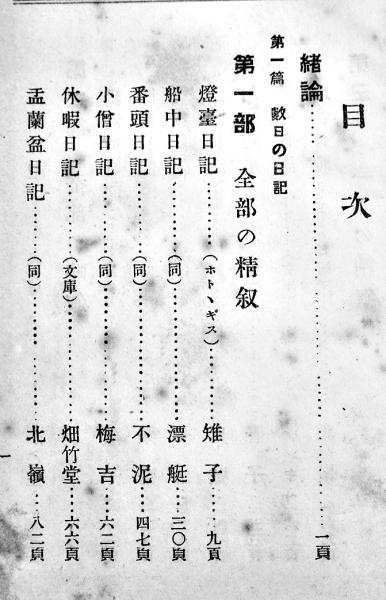 目次
緒論……………………………一頁
第一篇 數日の日記
第一部 全部の精叙
燈臺日記……(ホトヽギス)……雉子……九頁
船中日記……(同)……漂艇……三〇頁
番頭日記……(同)……不泥……四七頁
小僧日記……(同)……梅吉……六二頁
休暇日記……(文庫)……畑竹堂……六六頁
盂蘭盆日記……(同)……北嶺……八二頁